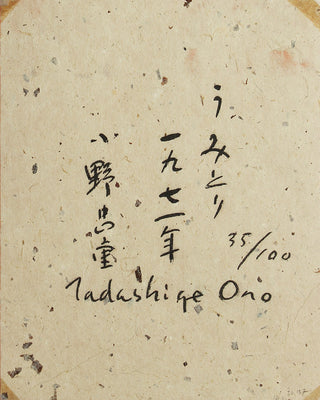 うみとり
一九七一年
小野忠重
35/100
Tadashige Ono